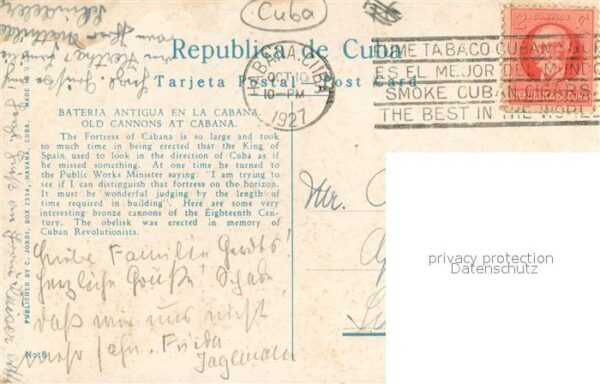 Cuba
Republica de Cuba
Tarjeta Postal Post Card
HABANA, CUBA
OCT 10
10-PM
1927
FUME TABACO CUBANO QUE
ES EL MEJOR DEL MUNDO
SMOKE CUBAN CIGARS
THE BEST IN THE WORLD
CORREOS
2 C
BATERIA ANTIGUA EN LA CABANA.
OLD CANNONS AT CABANA.
The Fortress of Cabana is so large and took
so much time in being erected that the King of
Spain used to look in the direction of Cuba as if
he missed something. At one time he turned to
the Public Works Minister saying: "I am trying to
see if I can distinguish that fortress on the horizon.
It must be wonderful judging by the length of
time required in building". Here are some very
interesting bronze cannons of the Eighteenth Cen-
tury. The obelisk was erected in memory of
Cuban Revolutionists.
Liebe Familie Gerdts!
Herzliche Grüße! Schade,
daß wir uns nicht
mehr sahn. Frieda
No. 6
PUBLISHED BY C. JORDI, BOX 2334, HAVANA, CUBA.
MADE IN
Mr.
privacy protection
Datenschutz